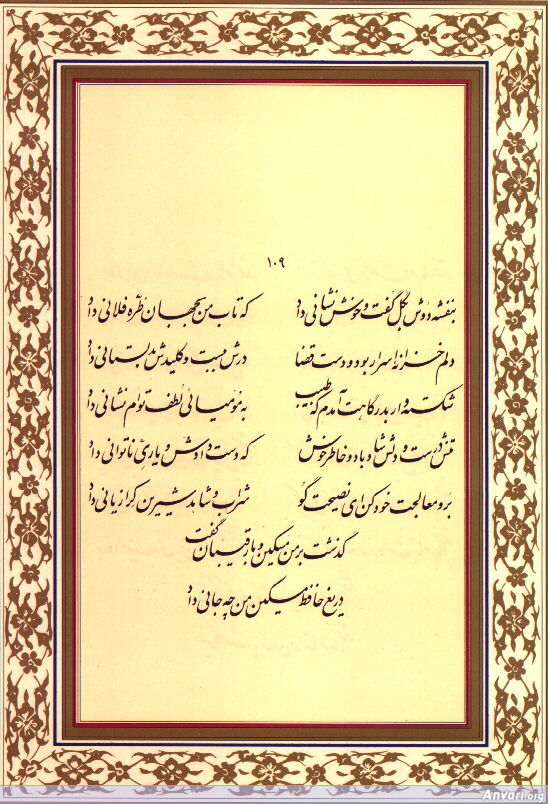 ۱۰۹
بنفشه دوش بگل گفت و خوش نشانی داد که تاب من بجهان طرّه فلانی داد
دلم خزانه اسرار بود و دست قضا درش ببست و کلیدش بدلستانی داد
شکسته وار بدرگاهت آمدم که طبیب به مومیائی لطف توام نشانی داد
تنش درست و دلش شاد باد و خاطر خوش که دست دادش و یاری ناتوانی داد
برو معالجت خود کن ای نصیحت گو شراب و شاهد شیرین کرا زیانی داد
گذشت بر من مسکین و با رقیبان گفت
دریغ حافظ مسکین من چه جانی داد
Anvari.org